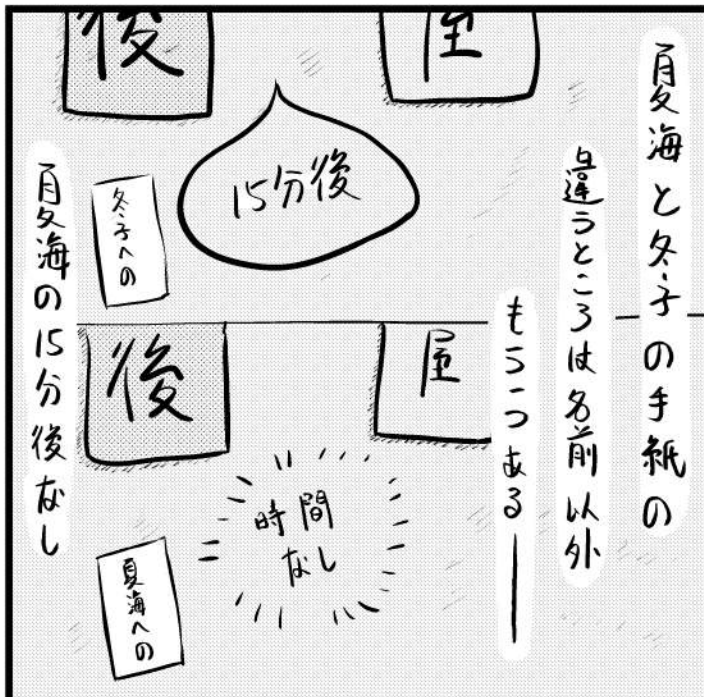 夏海と冬子の手紙の
違うところは名前以外
もう一つある——
屋
後
15分後
冬子への
屋
後
時間
なし
夏海への
夏海の15分後なし